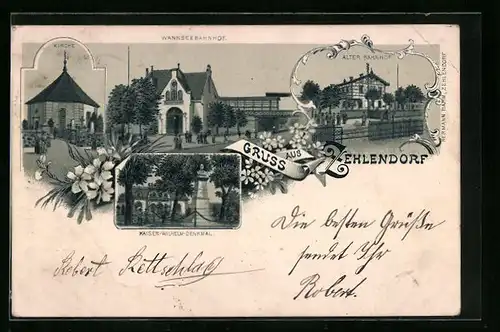 KIRCHE
WANNSEEBAHNHOF.
ALTER BAHNHOF
HERMANN ZEHLENDORF
GRUSS AUS ZEHLENDORF
KAISER-WILHELM-DENKMAL.
Die besten Grüße
sendet Ihr
Robert.
Robert Rettschlag